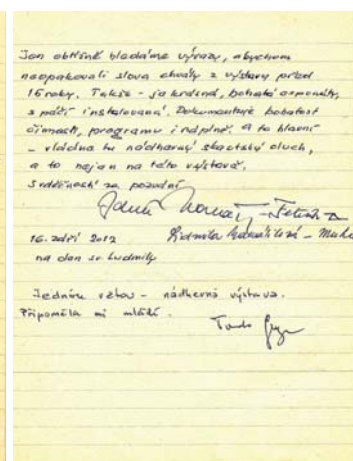 Jen obtížně hledáme výrazy, abychom
neopakovali slova chvály z výstavy před
16 roky. Takže - je krásná, bohatá exponáty,
s péčí instalovaná. Dokumentuje bohatost
činnosti, programu i náplně. A to hlavní
- vládne tu nádherný skautský duch,
a to nejen na této výstavě.
S vděčností za pozvání
16. září 2012 Ludmila
na den sv. Ludmily
Jednou větou - nádherná výstava.
Připoměla mi mládí.